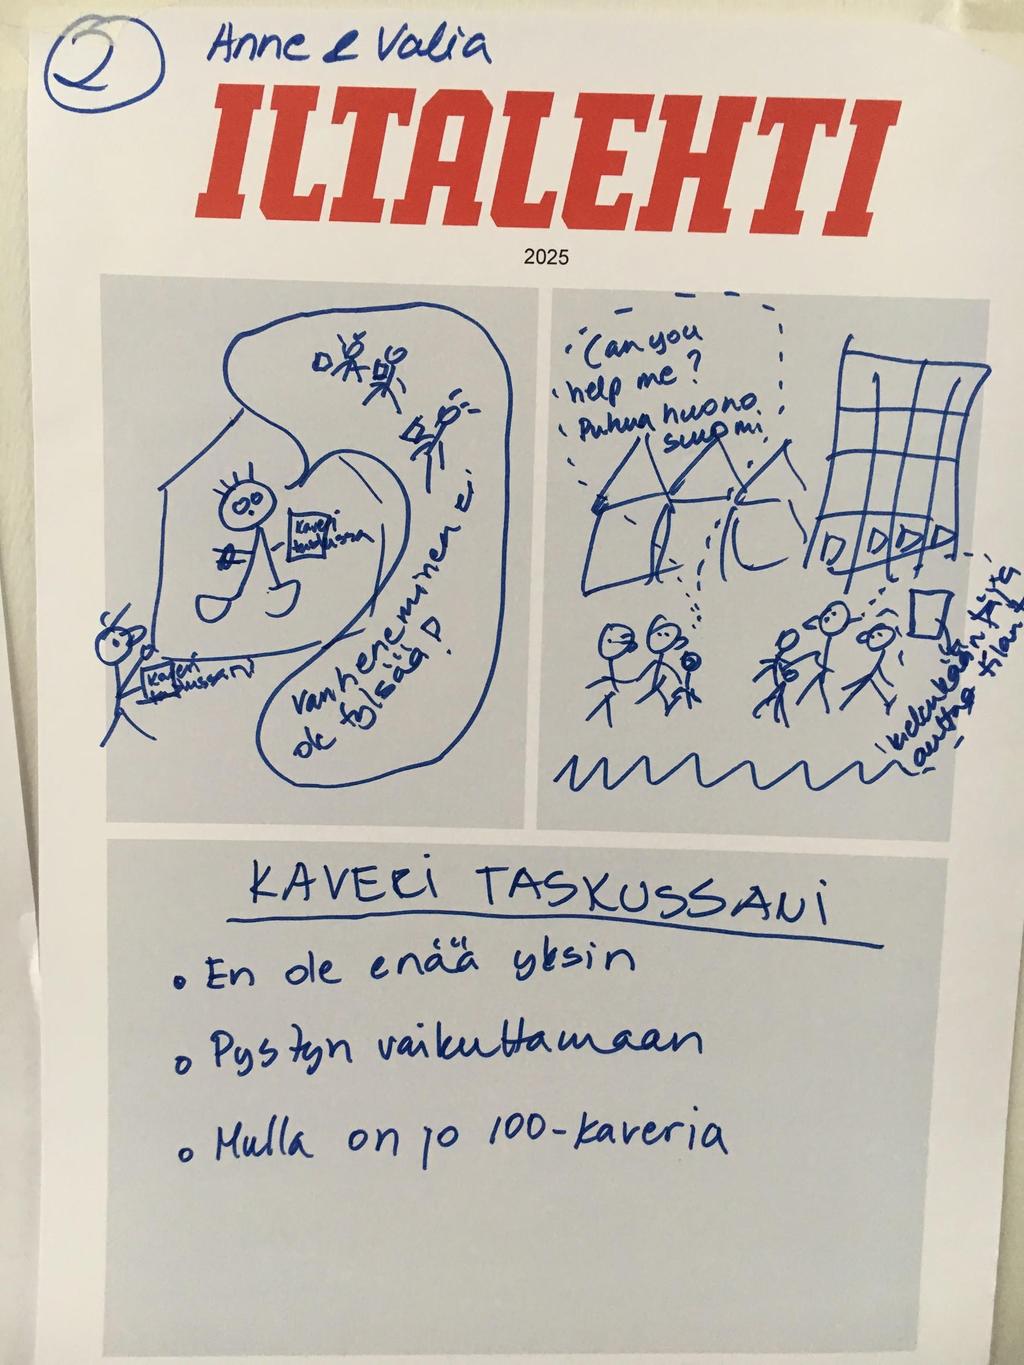 2
Anne & Valia
ILTALEHTI
2025
Kaveri
taskussa
Kaveri
taskussani
vanheneminen ei
ole tylsää!
Can you
help me?
Puhun huono
suomi
auttaa tilan
KAVERI TASKUSSANI
• En ole enää yksin
• Pystyn vaikuttamaan
• Mulla on jo 100-kaveria